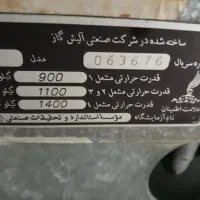 ساخته شده در شرکت صنعتی آلیش گاز
ره سریال 063676 مدل
قدرت حرارتی مشعل ۱ 900 کیلو
قدرت حرارتی مشعل ۲ و ۳ 1100 کیلو
قدرت حرارتی مشعل ۱ 1400 کیلو
نام آزمایشگاه مؤسسه استاندارد و تحقیقات صنعتی
علامت اطمینان